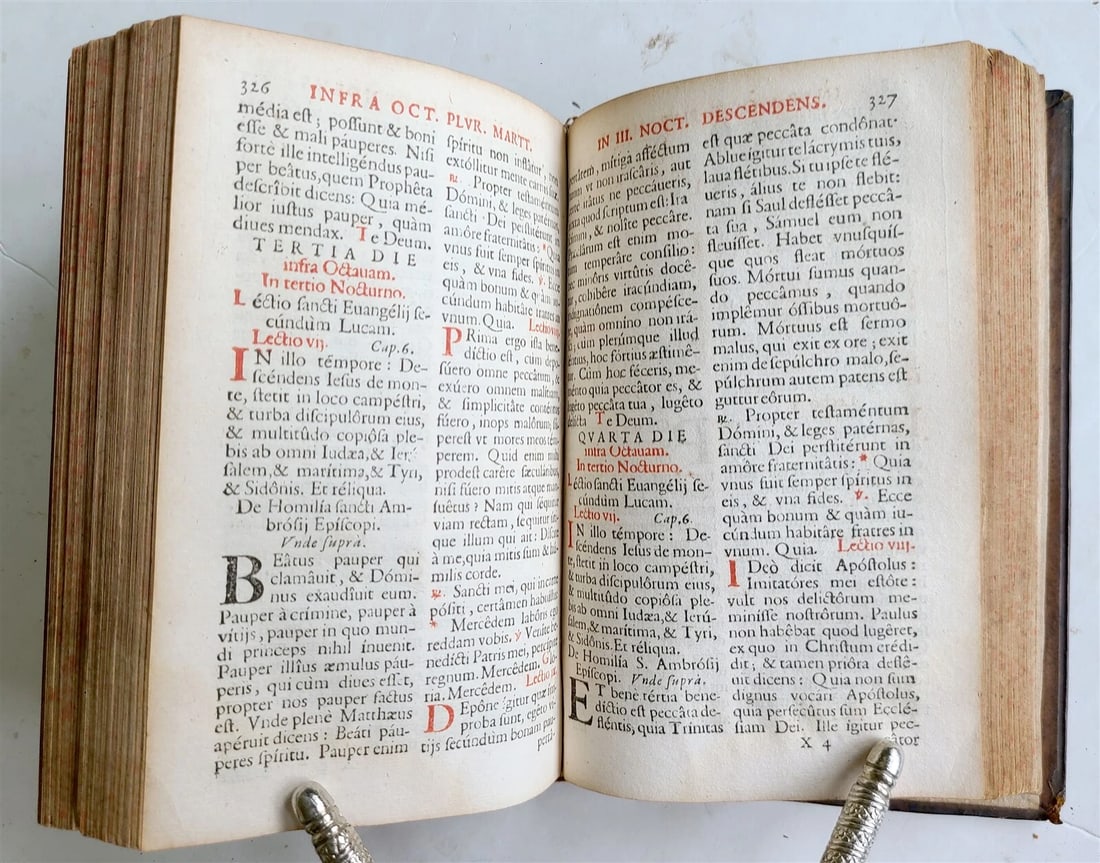 326
INFRA OCT. PLVR. MARTT.
média est; possunt & boni
esse & mali páuperes. Nisi
fortè ille intelligéndus pau-
per beâtus, quem Prophêta
descrîbit dicens: Quia mé-
lior iustus pauper, quàm
diues mendax. Te Deum.
TERTIA DIE
infra Octauam.
In tertio Nocturno.
Léctio sancti Euangélij se-
cúndùm Lucam.
Lectio vij. Cap.6.
IN illo témpore: De-
scéndens Iesus de mon-
te, stetit in loco campéstri,
& turba discipulôrum eius,
& multitûdo copiôsa ple-
bis ab omni Iudæa, & Ierú-
salem, & marítima, & Tyri,
& Sidônis. Et réliqua.
De Homilía sancti Am-
brósij Epíscopi.
Vnde suprà.
BEâtus pauper qui
clamâuit, & Dómi-
nus exaudîuit eum.
Pauper à crímine, pauper à
vítijs, pauper in quo mun-
di princeps nihil ínuenit.
Pauper illîus æmulus páu-
peris, qui cùm diues esset,
propter nos pauper factus
est. Vnde plenè Matthæus
apéruit dicens: Beáti páu-
peres spíritu. Pauper enim
spíritu non inflâtur,
extóllitur mente carnáli
℟. Propter testaméntum
Dómini, & leges patérnas
sancti Dei perstitérunt in
amôre fraternitâtis: * Quia
vnus fuit semper spíritus in
eis, & vna fides. ℣. Ecce
quàm bonum & quàm iu-
cúndum habitâre fratres in
vnum. Quia. Lectio viij.
PRima ergo ista bene-
díctio est, cùm depo-
súero omne peccâtum, &
exúero omnem malítiam,
& simplicitâte conténtus
súero, inops malôrum,
perest vt mores meos tém-
perem. Quid enim mihi
prodest carêre sæculáribus,
nisi fúero mitis atque man-
suêtus? Nam qui séquitur
viam rectam, séquitur vti-
que illum qui ait: Díscite
à me, quia mitis sum & hú-
milis corde.
℟. Sancti mei, qui in carne
pósiti, certâmen habuístis:
* Mercêdem labôris ego
reddam vobis. ℣ Venîte be-
nedícti Patris mei, percípite
regnum. Mercêdem. Gló-
ria. Mercêdem. Lectio ix.
DEpône igitur quæ im-
proba sunt, egéto ví-
tijs secúndùm bonam pau-
pertâ-
IN III. NOCT. DESCENDENS.
327
pertâtem, mítiga afféctum
tuum vt non irascâris, aut
certè irâtus ne peccáueris,
iuxta quod scriptum est: Ira-
scímini, & nolîte peccâre.
Præclârum est enim mo-
tum temperâre consílio:
nec minôris virtûtis docê-
tur, cohibêre iracúndiam,
indignatiônem compésce-
re, quàm omnino non irá-
sci; cùm plerúmque illud
lénius, hoc fórtius æstimê-
tur. Cùm hoc féceris, me-
ménto quia peccâtor es, &
lugêto peccâta tua, lugêto
delícta. Te Deum.
QVARTA DIE
infra Octauam.
In tertio Nocturno.
Léctio sancti Euangélij se-
cúndùm Lucam.
Lectio vij. Cap.6.
IN illo témpore: De-
scéndens Iesus de mon-
te, stetit in loco campéstri,
& turba discipulôrum eius,
& multitûdo copiôsa ple-
bis ab omni Iudæa, & Ierú-
salem, & marítima, & Tyri,
& Sidônis. Et réliqua.
De Homilía S. Ambrósij
Epíscopi. Vnde suprà.
ET benè tértia bene-
díctio est peccâta de-
fléntis, quia Trínitas
est quæ peccâta condônat.
Ablue igitur te lácrymis tuis,
laua flétibus. Si tu ipse te flé-
ueris, álius te non flebit:
nam si Saul defléßet peccâ-
ta sua, Sámuel eum non
fleuísset. Habet vnusquís-
que quos fleat mórtuos
suos. Mórtui sumus quan-
do peccâmus, quando
implêmur óssibus mortuô-
rum. Mórtuus est sermo
malus, qui exit ex ore; exit
enim de sepúlchro malo, se-
púlchrum autem patens est
guttur eôrum.
℟. Propter testaméntum
Dómini, & leges patérnas,
sancti Dei perstitérunt in
amôre fraternitâtis: * Quia
vnus fuit semper spíritus in
eis, & vna fides. ℣. Ecce
quàm bonum & quàm iu-
cúndum habitâre fratres in
vnum. Quia. Lectio viij.
IDeò dicit Apóstolus:
Imitatóres mei estôte:
vult nos delictôrum me-
minísse nostrórum. Paulus
non habêbat quod lugêret,
ex quo in Christum crédi-
dit; & tamen priôra deflê-
uit dicens: Quia non sum
dignus vocári Apóstolus,
quia persecûtus sum Ecclé-
siam Dei. Ille igitur pec-
X 4 câtor